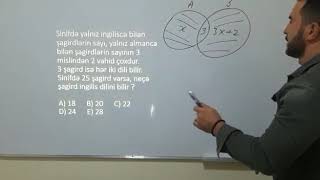 Sinifdə yalnız ingiliscə bilən
şagirdlərin sayı, yalnız almanca
bilən şagirdlərin sayının 3
mislindən 2 vahid çoxdur.
3 şagird isə hər iki dili bilir.
Sinifdə 25 şagird varsa, neçə
şagird ingilis dilini bilir ?
A) 18 B) 20 C) 22
D) 24 E) 28
A
x 3 3x+2